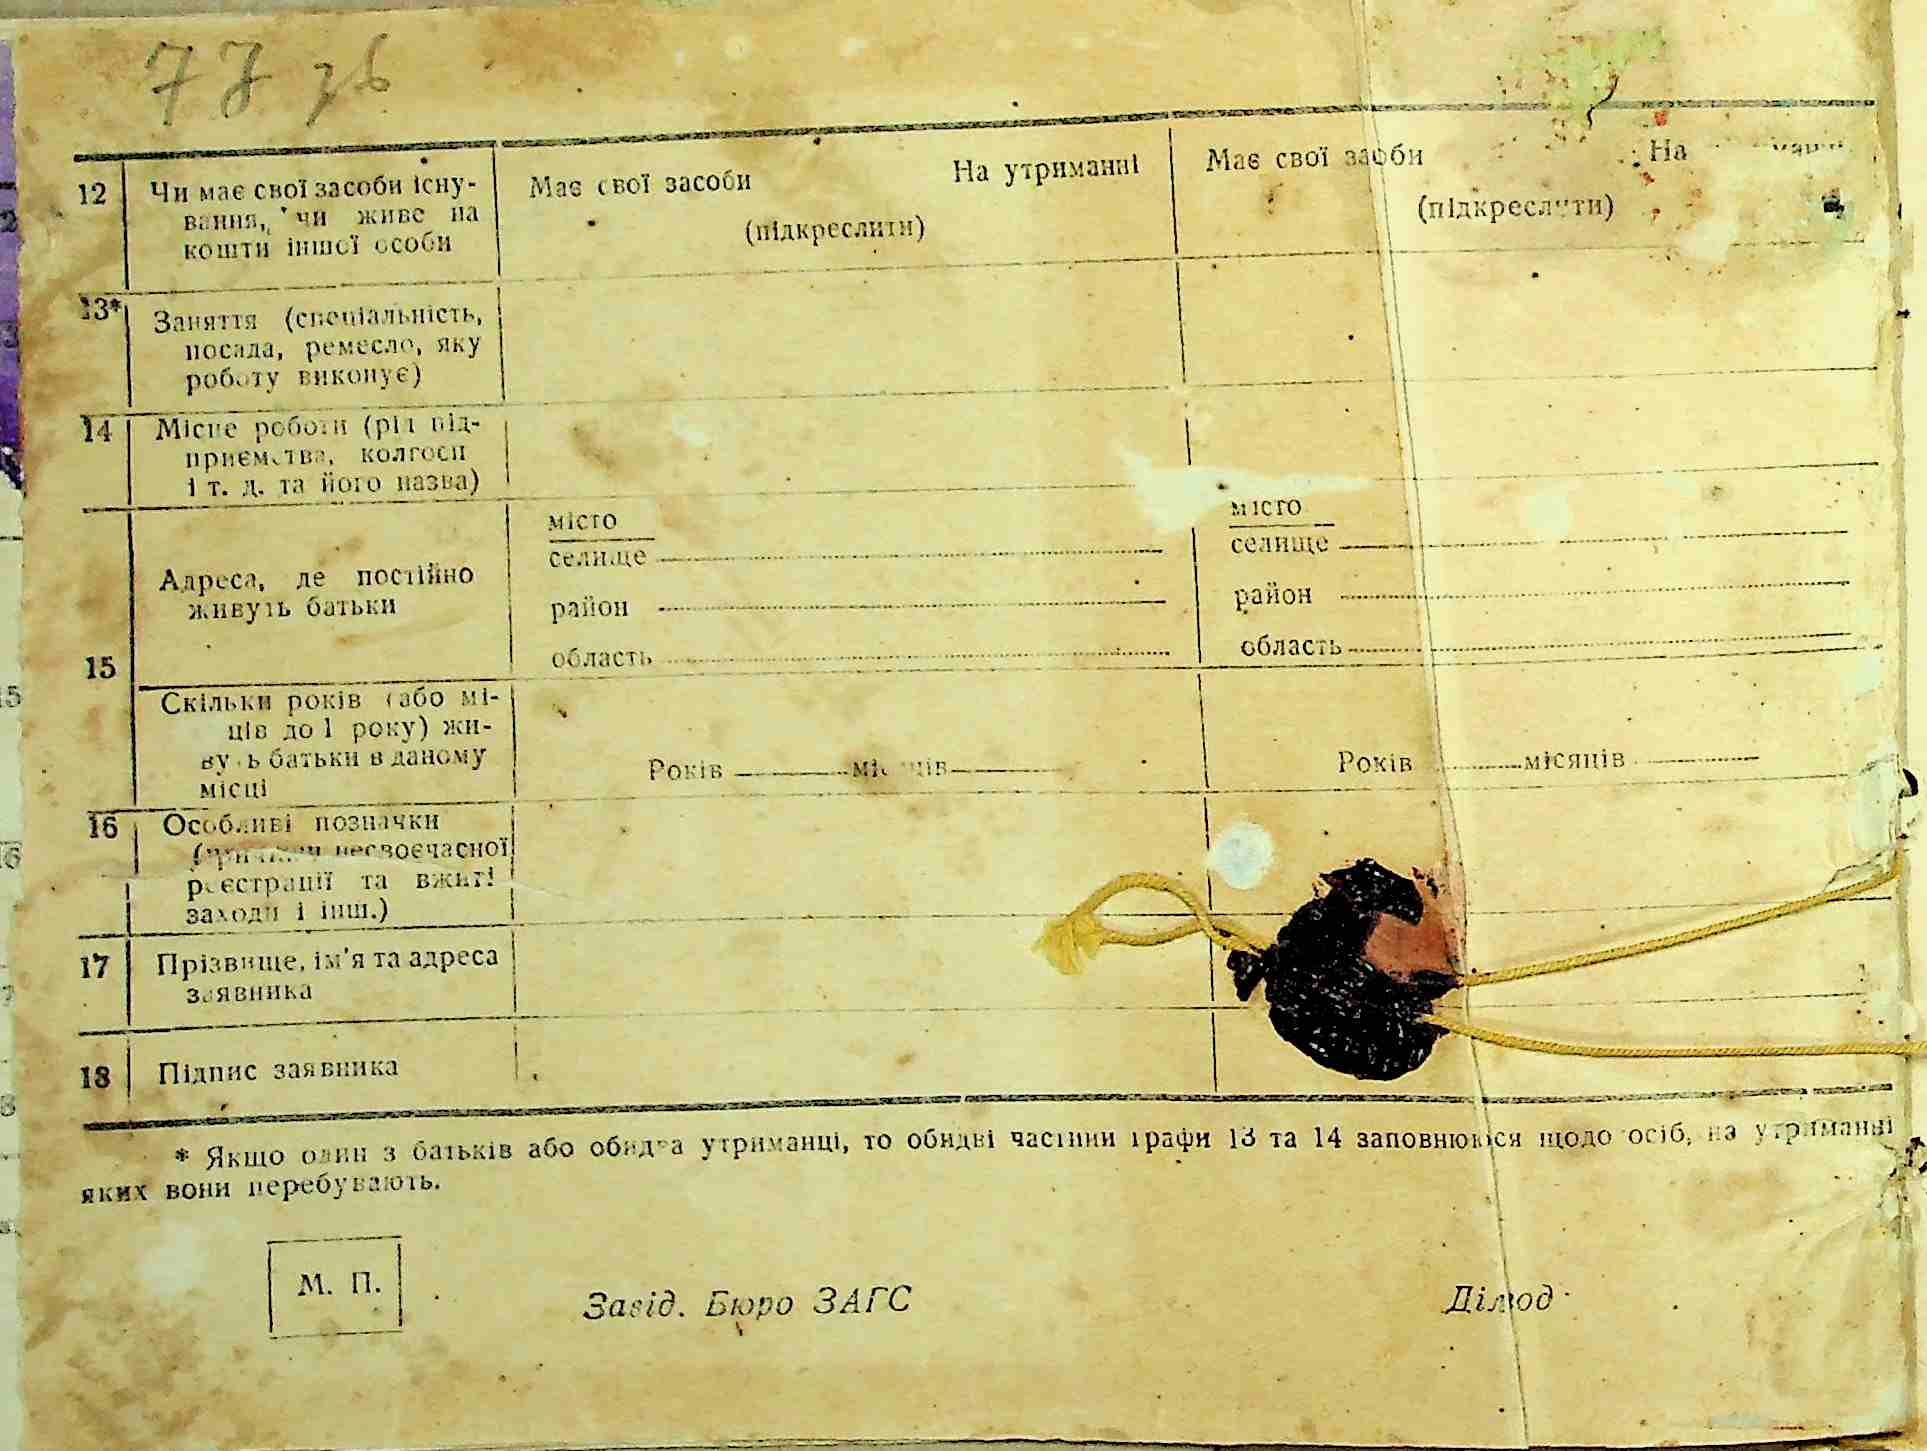 77 зв
12 Чи має свої засоби існу-
вання, чи живе на
кошти іншої особи
Має свої засоби На утриманні
(підкреслити)
Має свої засоби На
(підкреслити)
13* Заняття (спеціальність,
посада, ремесло, яку
роботу виконує)
14 Місце роботи (рід під-
приємства, колгосп
і т. д. та його назва)
15
Адреса, де постійно
живуть батьки
місто
селище
район
область
місто
селище
район
область
Скільки років (або мі-
ців до 1 року) жи-
вуть батьки в даному
місці
Років місяців
Років місяців
16 Особливі позначки
(причини несвоєчасної
реєстрації та вжиті
заходи і інш.)
17 Прізвище, ім'я та адреса
заявника
18 Підпис заявника
* Якщо один з батьків або обидва утриманці, то обидві частини графи 13 та 14 заповнюються щодо осіб, на утриманні
яких вони перебувають.
М. П.
Завід. Бюро ЗАГС
Діловод